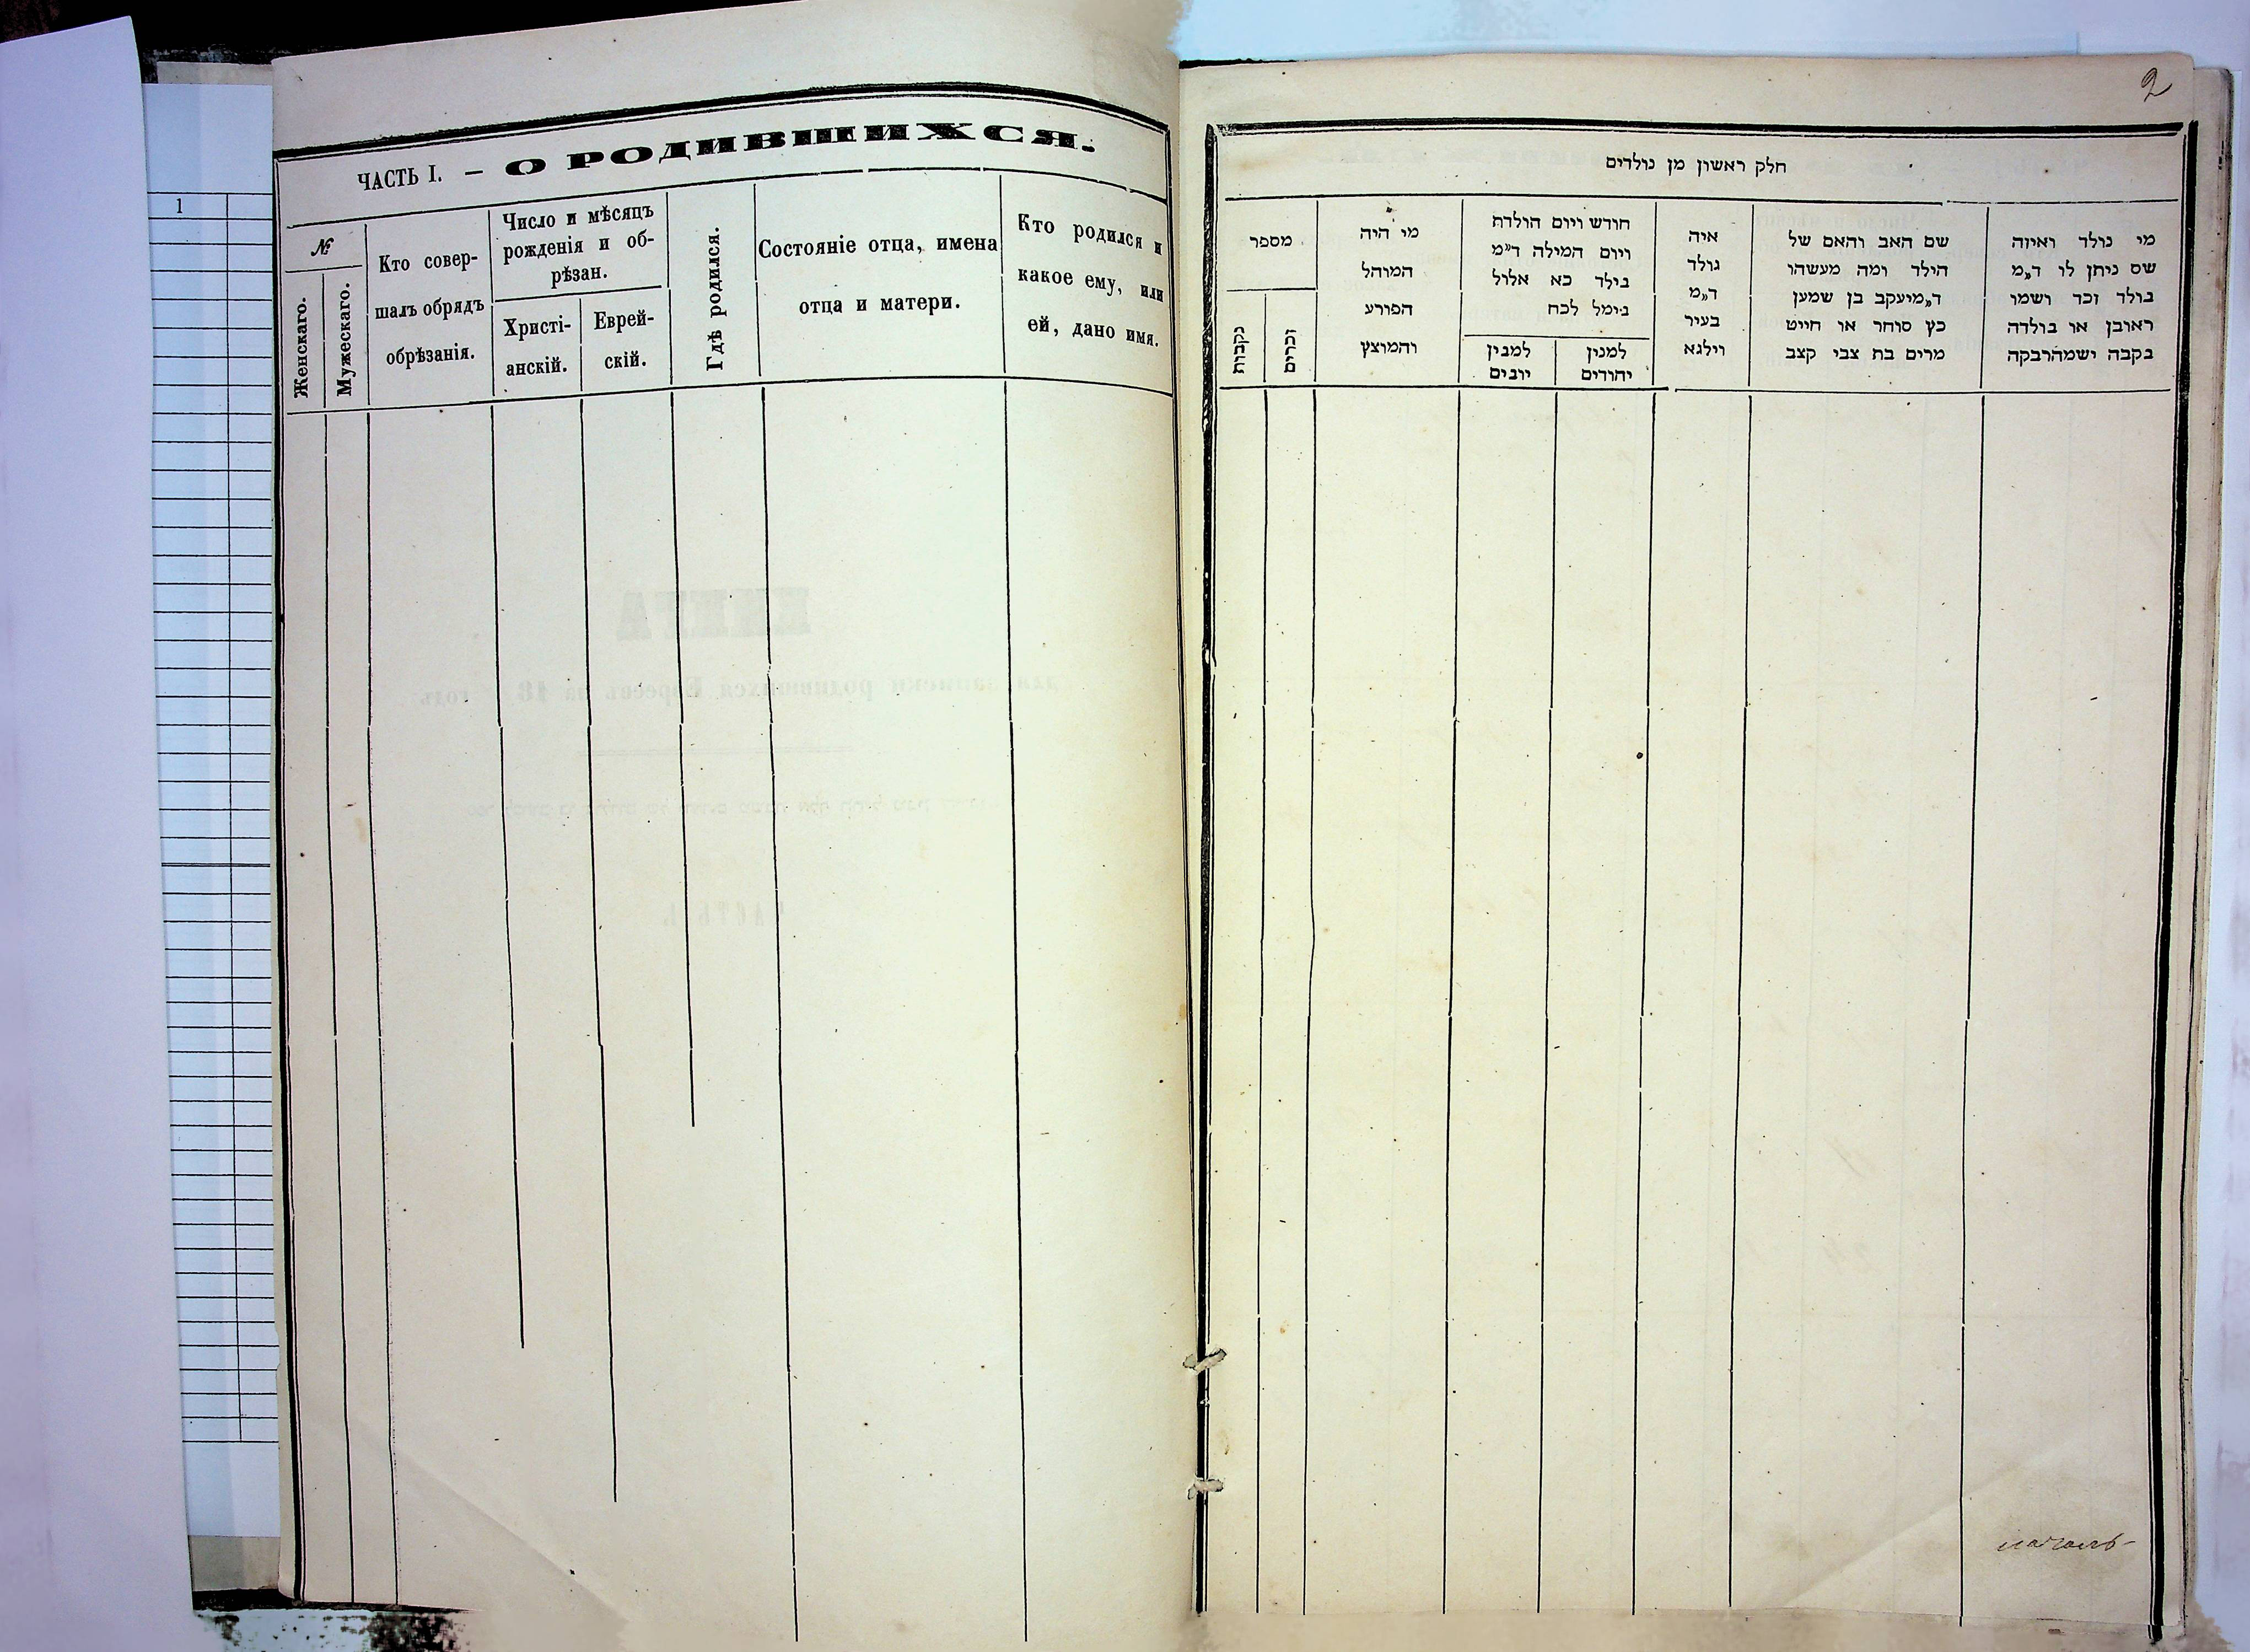 1
ЧАСТЬ I. – О РОДИВШИХСЯ.
№
Женскаго.
Мужескаго.
Кто совер-
шалъ обрядъ
обрѣзанія.
Число и мѣсяцъ
рожденія и об-
рѣзан.
Христі-
анскій.
Еврей-
скій.
Гдѣ родился.
Состояніе отца, имена
отца и матери.
Кто родился и
какое ему, или
ей, дано имя.
2
חלק ראשון מן נולדים
מי נולד ואיזה
שם ניתן לו ד„מ
בולד זכר ושמו
ראובן או בולדה
בקבה ישמהרבקה
שם האב והאם של
הילד ומה מעשהו
ד„מיעקב בן שמען
כץ סוחר או חייט
מרים בת צבי קצב
איה
נולד
ד„מ
בעיר
וילנא
חודש ויום הולדת
ויום המילה ד״מ
בילד כא אלול
בימל לכח
למנין
יהודים
למבין
יובים
מי היה
המוהל
הפורע
והמוצץ
מספר
זכרים
נקבות
КНИГА
для записки родившихся Евреевъ на 18 годъ
ЧАСТЬ I.